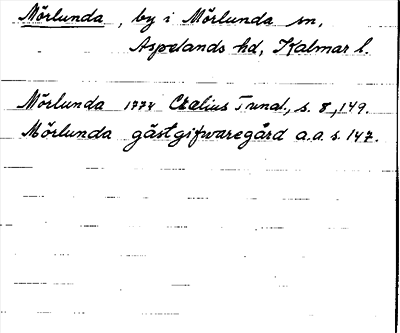 Mörlunda, by i Mörlunda sn,
Aspelands hd, Kalmar l.
Mörlunda 1774 Cralius Tunal., s. 8, 149.
Mörlunda gästgifwaregård a.a. s. 147.